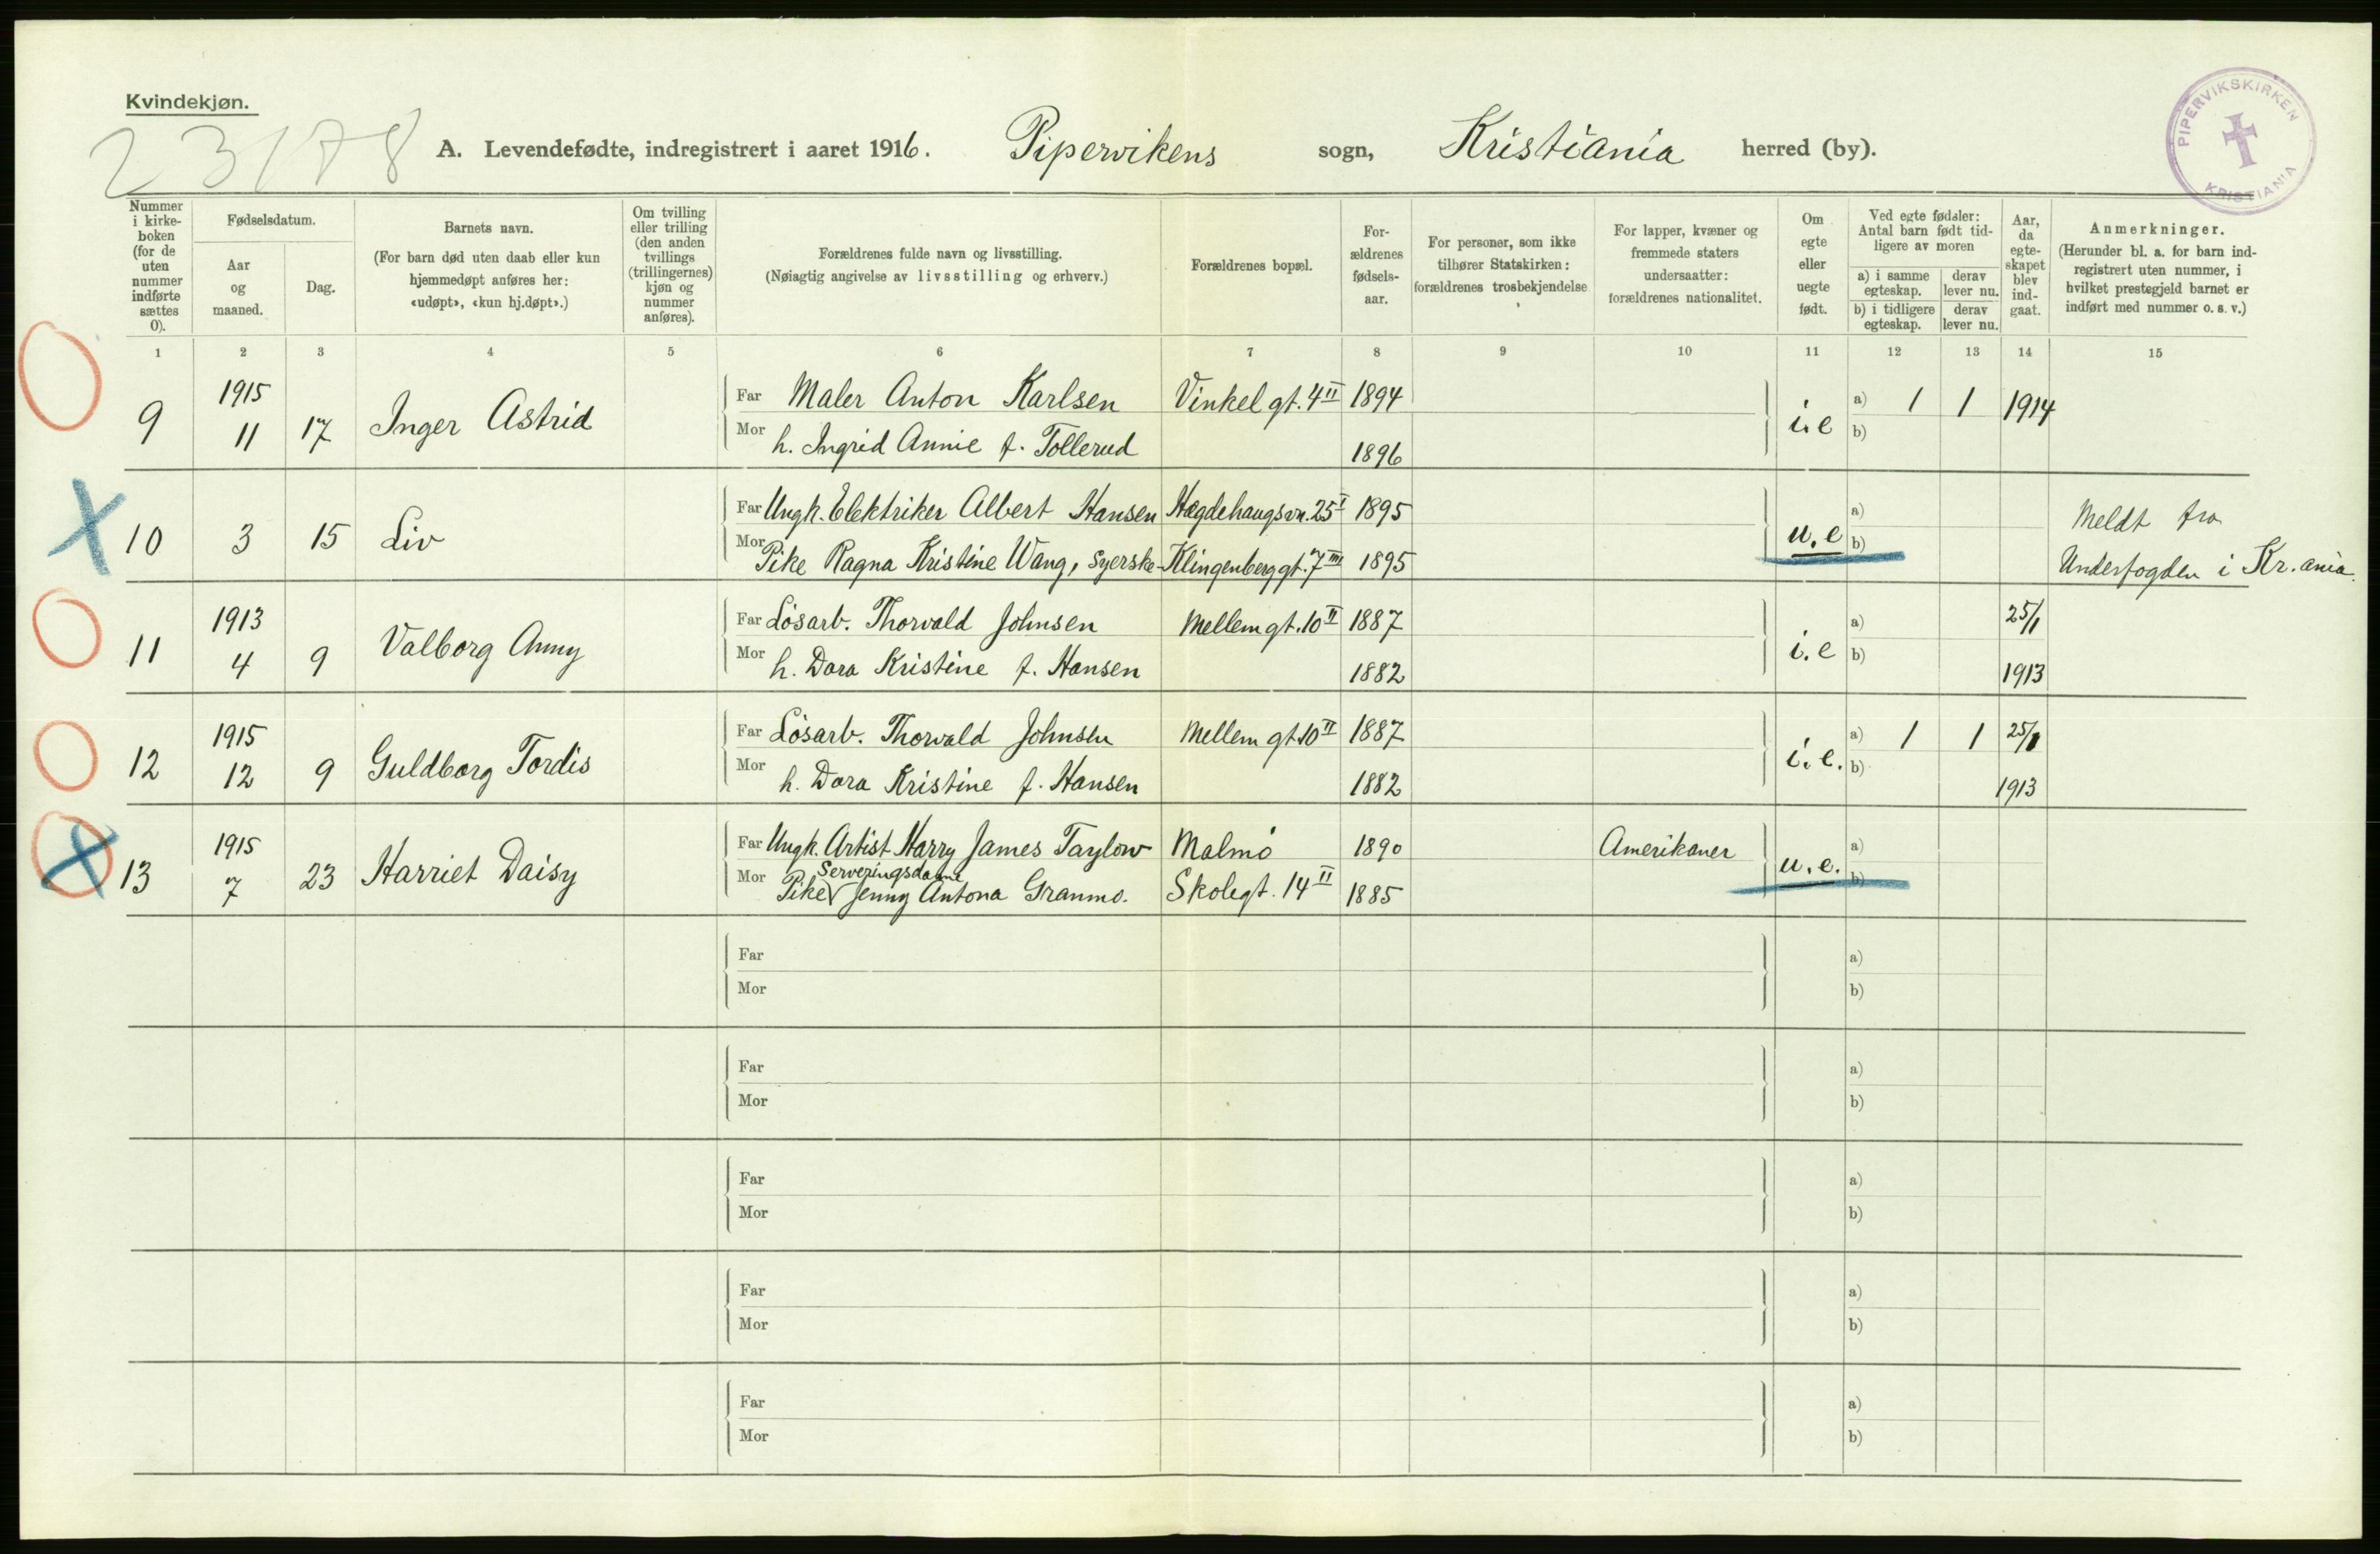 Kvindekjøn.
23178
A. Levendefødte, indregistrert i aaret 1916. Pipervikens sogn, Kristiania herred (by).
PIPERVIKSKIRKEN
KRISTIANIA
Nummer i kirke-boken (for de uten nummer indførte sættes 0).
Fødselsdatum.
Aar og maaned.
Dag.
Barnets navn.
(For barn død uten daab eller kun hjemmedøpt anføres her: «udøpt», «kun hj.døpt».)
Om tvilling eller trilling (den anden tvillings (trillingernes) kjøn og nummer anføres).
Forældrenes fulde navn og livsstilling.
(Nøiagtig angivelse av livsstilling og erhverv.)
Forældrenes bopæl.
For-ældrenes fødsels-aar.
For personer, som ikke tilhører Statskirken: forældrenes trosbekjendelse
For lapper, kvæner og fremmede staters undersaatter: forældrenes nationalitet.
Om egte eller uegte født.
Ved egte fødsler: Antal barn født tid-ligere av moren
a) i samme egteskap.
derav lever nu.
b) i tidligere egteskap.
derav lever nu.
Aar, da egte-skapet blev ind-gaat.
Anmerkninger.
(Herunder bl. a. for barn ind-registrert uten nummer, i hvilket prestegjeld barnet er indført med nummer o. s. v.)
1 2 3 4 5 6 7 8 9 10 11 12 13 14 15
9 1915 11 17 Inger Astrid
Far Maler Anton Karlsen Vinkel gt. 4 II 1894 i.e a) 1 1 1914
Mor h. Ingrid Annie f. Tollerud 1896 b)
10 3 15 Liv
Far Ungk. Elektriker Albert Hansen Hægdehaugsvn. 25 I 1895 u.e a) Meldt fra
Mor Pike Ragna Kristine Wang, Syerske Klingenberggt. 7 III 1895 b) Underfogden i Kr.ania.
11 1913 4 9 Valborg Anny
Far Løsarb. Thorvald Johnsen Mellem gt. 10 II 1887 i.e a) 25/1
Mor h. Dora Kristine f. Hansen 1882 b) 1913
12 1915 12 9 Guldborg Tordis
Far Løsarb. Thorvald Johnsen Mellem gt 10 II 1887 i.e. a) 1 1 25/1
Mor h. Dora Kristine f. Hansen 1882 b) 1913
13 1915 7 23 Harriet Daisy
Far Ungk. Artist Harry James Taylow Malmö 1890 Amerikaner u.e. a)
Serveringsdame
Mor Pike V Jenny Antona Granmo. Skolegt. 14 II 1885 b)
Far a)
Mor b)
Far a)
Mor b)
Far a)
Mor b)
Far a)
Mor b)
Far a)
Mor b)